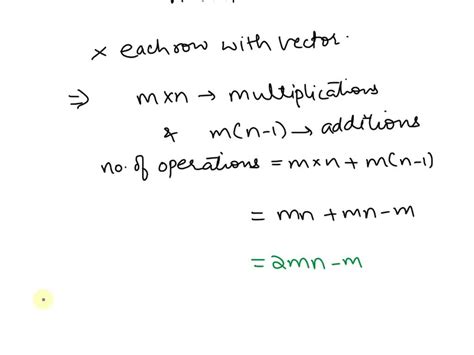 x each row with vector.
⇒ m×n → multiplications
& m(n-1) → additions
no. of operations = m×n + m(n-1)
= mn + mn - m
= 2mn - m